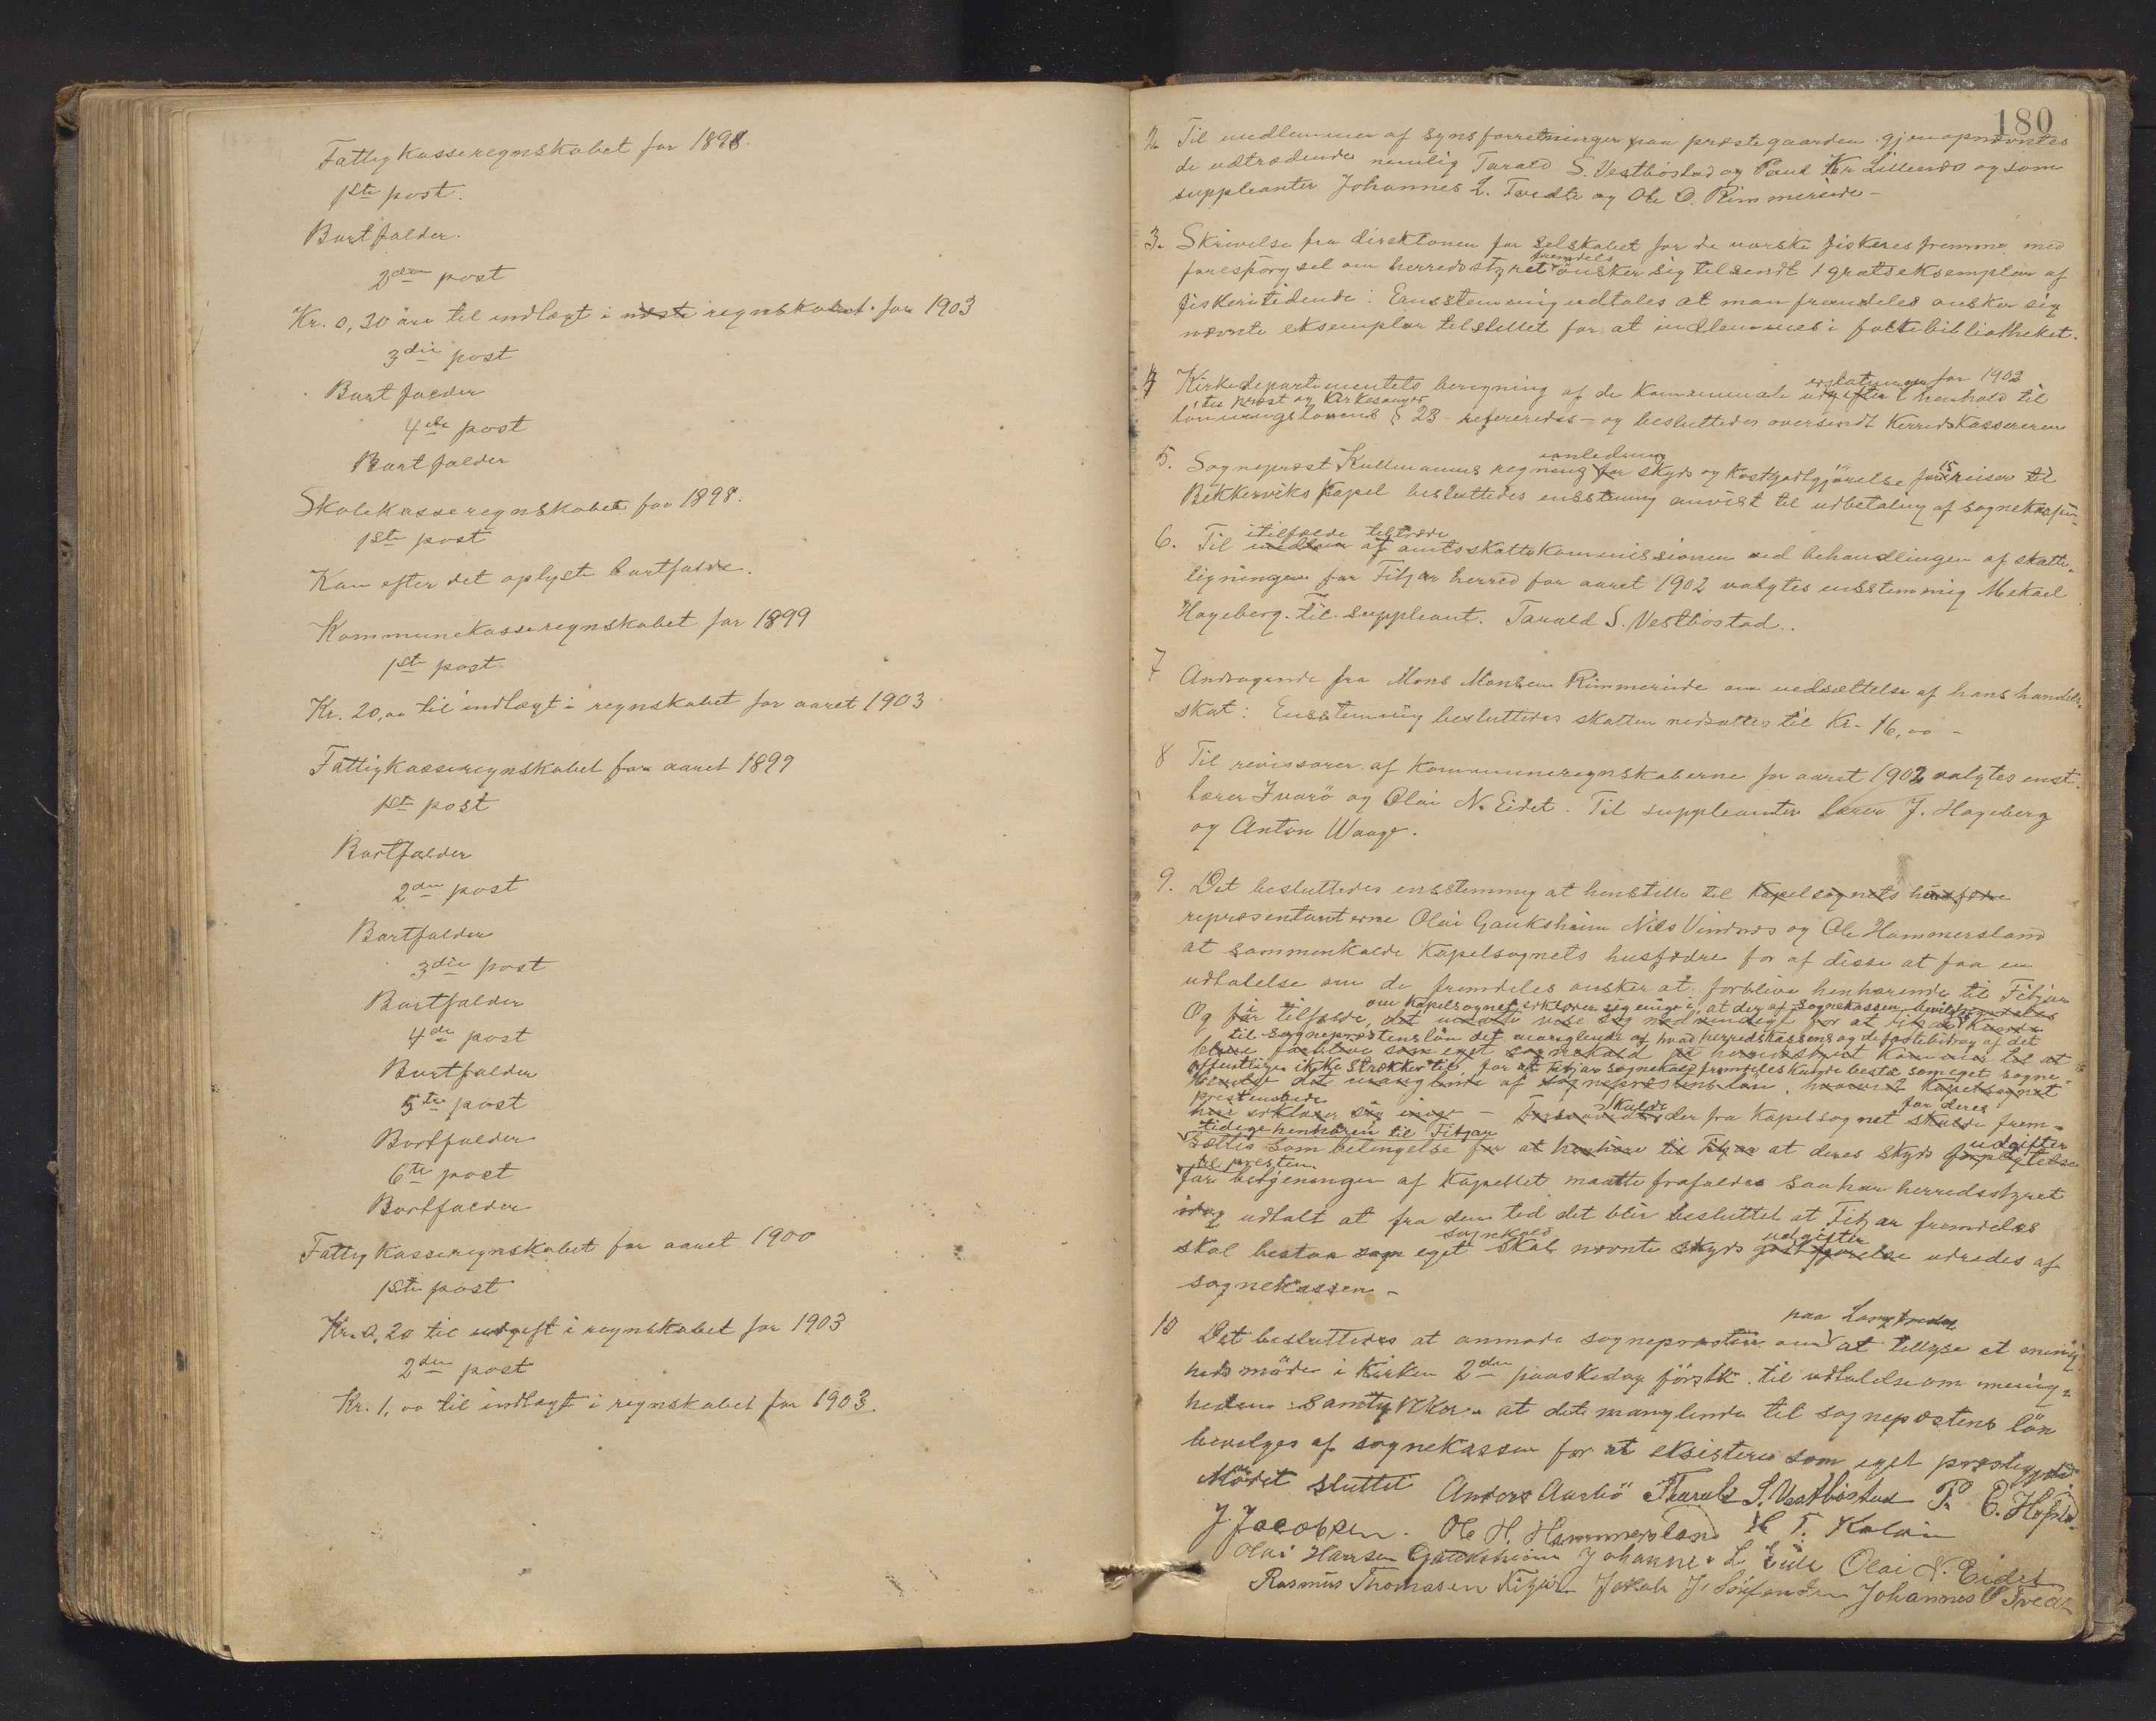 Fattigkasseregnskabet for 1898.
1ste post.
Bortfalder.
2den post
Kr. 0,30 öre til indtægt i næste regnskabet for 1903
3die post
Bortfalder
4de post
Bortfalder
Skolekasseregnskabet for 1898.
1ste post
Kan efter det oplyste bortfalde.
Kommunekasseregnskabet for 1899
1ste post.
Kr. 20,00 til indtægt i regnskabet for aaret 1903
Fattigkasseregnskabet for aaret 1899
1ste post
Bortfalder
2den post
Bortfalder
3die post
Bortfalder
4de post
Bortfalder
5te post
Bortfalder
6te post
Bortfalder
Fattigkasseregnskabet for aaret 1900
1ste post
Kr. 0,20 til udgift i regnskabet for 1903
2den post
Kr. 1,00 til indtægt i regnskabet for 1903.
180
2. Til medlemmer af synsforretninger paa præstegaarden gjenopnævntes
de udtrædende nemlig Tarald S. Vestböstad og Poul Kr. Lillenæs og som
suppleanter Johannes L. Tvedte og Ole O. Rimmereide -
3. Skrivelse fra direktionen for selskabet for de norske fiskeries fremme med
fremdeles
forespörgsel om herredsstyret önsker sig tilsendt 1 gratiseksemplar af
fiskeritidende: Eensstemmig udtales at man fremdeles ønsker sig
nævnte eksemplar tilstillet for at indlemmes i folkebibliotheket.
4 Kirkedepartementets beregning af de kommunale udgifter i henhold til
erstatninger for 1902
til prest og kirkesanger
lönningslovens § 23 refereredes - og besluttedes oversendt Herredskassereren
anledning
5. Sogneprest Kullmanns regning for skyds og kostgodtgjörelse for 15 reiser til
Bekkerviks Kapel besluttedes ensstemmig anvist til udbetaling af sognekassen
itilfælde tiltræde
6. Til medlem af amtsskattekommissionen ved behandlingen af skatte-
ligningen for Fitjar herred for aaret 1902 valgtes ensstemmig Mekael
Hageberg. Til suppleant. Tarald S. Vestböstad.
7 Andragende fra Mons Monsen Rimmereide om nedsættelse af hans handels-
skat: Ensstemmig besluttedes skatten nedsattes til Kr. 16,00 -
8 Til revisorer af kommuneregnskaberne for aaret 1902 valgtes enst.
lærer Ivarö og Olai N. Eidet. Til suppleanter lærer J. Hageberg
og Anton Waage.
9. Det besluttedes ensstemmig at henstille til Kapelsognets husfædre
repræsentanterne Olai Gauksheim Nils Vindenes og Ole Hammersland
at sammenkalde Kapelsognets husfædre for af disse at faa en
udtalelse om de fremdeles ønsker at forblive henhørende til Fitjar
om Kapelsognet erklærer sig enige i, at der af sognekassen bevilges
Og för tilfælde, det maatte vise sig nødvendigt for at Fitjar kunde
til sogneprestens lön det manglende af hvad herredskassens og de faste bidrag af det
blive forblive som eget sognekald at herredsstyret kommer til at
offentlige ikke strækker til, for at Fitjar sognekald fremdeles kunde bestå som eget sogne-
bevilge det manglende af sogneprestens lön, hvorved Kapelsognet
prestembede
her erklærer sig enige - skulde der fra Kapelsognet skulde frem-
for deres
tidige henhören til Fitjar
sættes som betingelse for at henhøre til Fitjar at deres skyds forpligtelse
udgifter
til presten
for betjeningen af Kapellet maatte frafaldes saa har herredsstyret
idag udtalt at fra den tid det blir besluttet at Fitjar fremdeles
sognekald udgifter
skal bestaa som eget skal nævnte skyds godtgjørelse udredes af
sognekassen -
paa Langfredag
10 Det besluttedes at anmode sognepresten om at tillyse et menig-
hedsmöde i kirken 2den paaskedag förstk. til udtalelse om menig-
heden samtykker at det manglende til sognepræstens lön
bevilges af sognekassen for at eksistere som eget præstegjeld
Mödet sluttet Anders Aarbö Tharald S. Vestböstad P. C. Höfsta
J. Jacobsen. Ole H. Hammersland H T. Kalven
Olai Hansen Gauksheim Johannes L Eide Olai N. Eidet
Rasmus Thomasen Fitjar Jakob J. Johannes O Tvedt